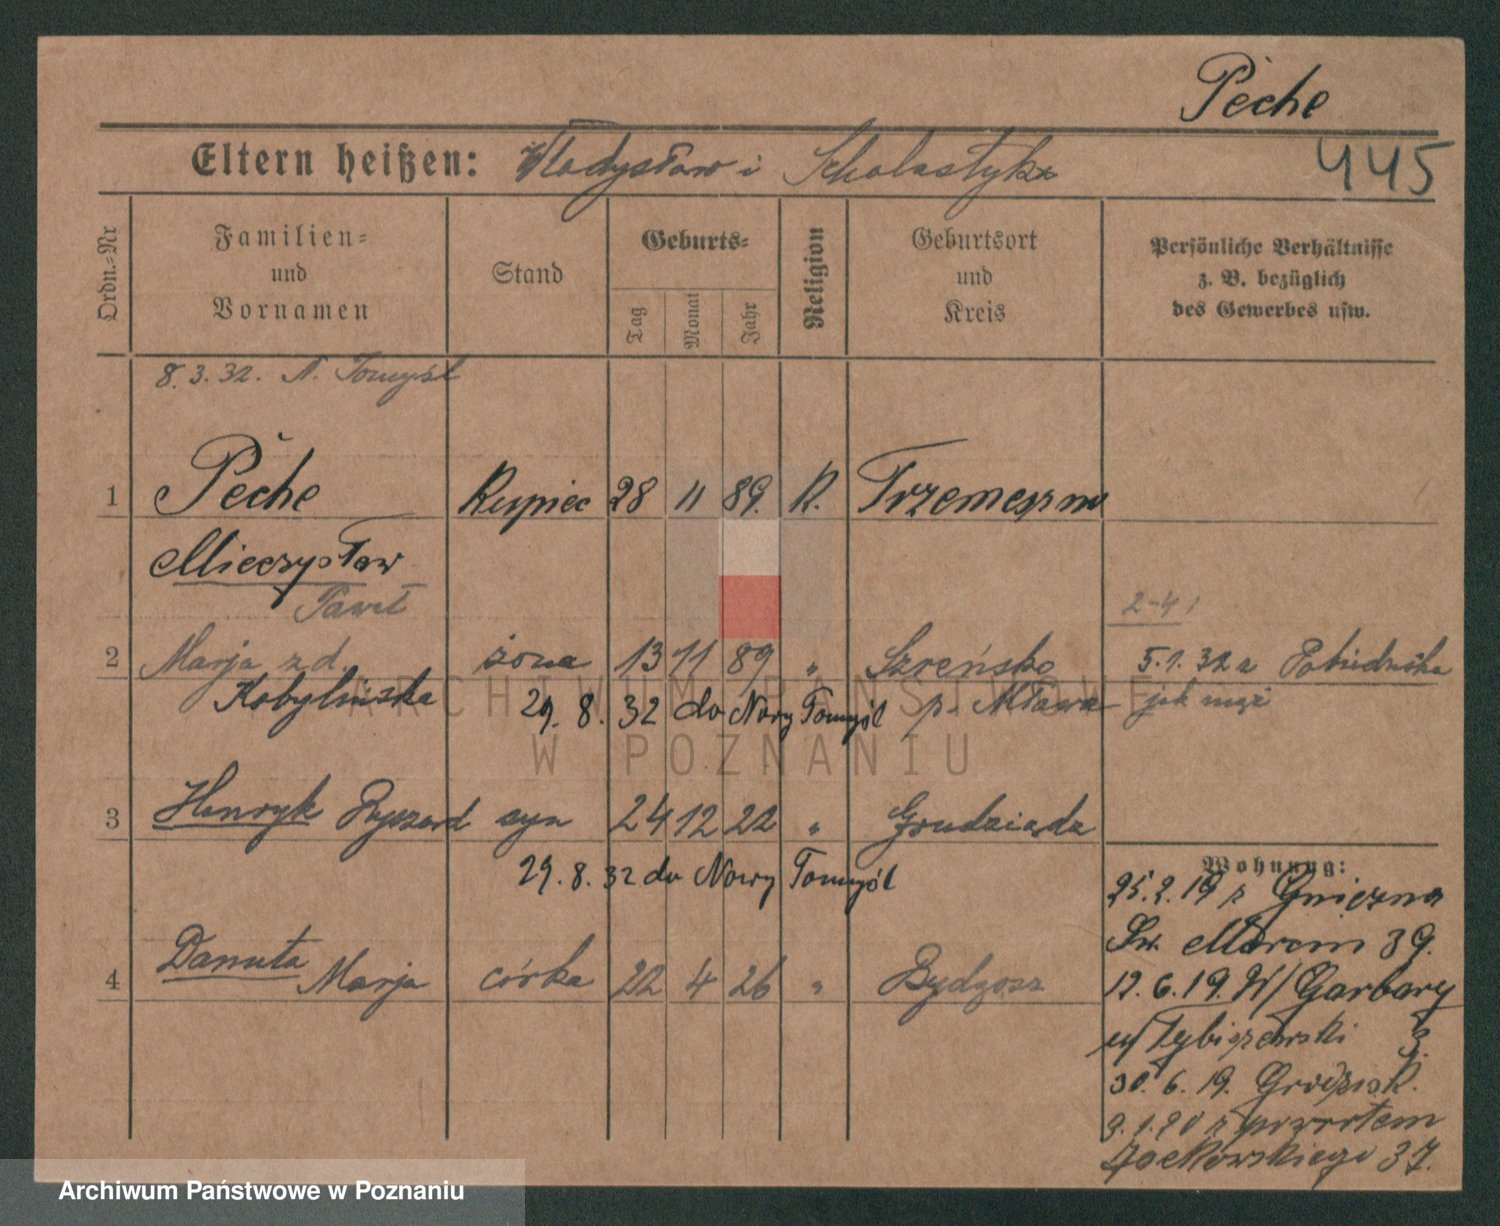 Peche
Eltern heißen: Władysław i Scholastyka
445
Ordn.-Nr
Familien- und Vornamen
Stand
Geburts-
Tag
Monat
Jahr
Religion
Geburtsort und Kreis
Persönliche Verhältnisse z. B. bezüglich des Gewerbes usw.
8.3.32. N. Tomyśl
1 Peche Kupiec 28 11 89. K. Trzemeszno
Mieczysław
Paweł
2-41
2 Marja z d. żona 13 11 89 " Szreńsko 5.1.32 z
Kobylińska 29.8.32 do Nowy Tomyśl p. Mława jak mąż
3 Henryk Ryszard syn 24 12 22 " Grudziądz
29.8.32 do Nowy Tomyśl
4 Danuta Marja córka 22 4 26 " Bydgosz
Wohnung:
25.2.19 z Gniezna
Św. Marcin 39.
12.6.19. W/Garbary
u/ 3.
30.6.19. Grodzisk.
9.1.20 z powrotem
Jackowskiego 37.
ARCHIWUM PAŃSTWOWE
W POZNANIU
Archiwum Państwowe w Poznaniu